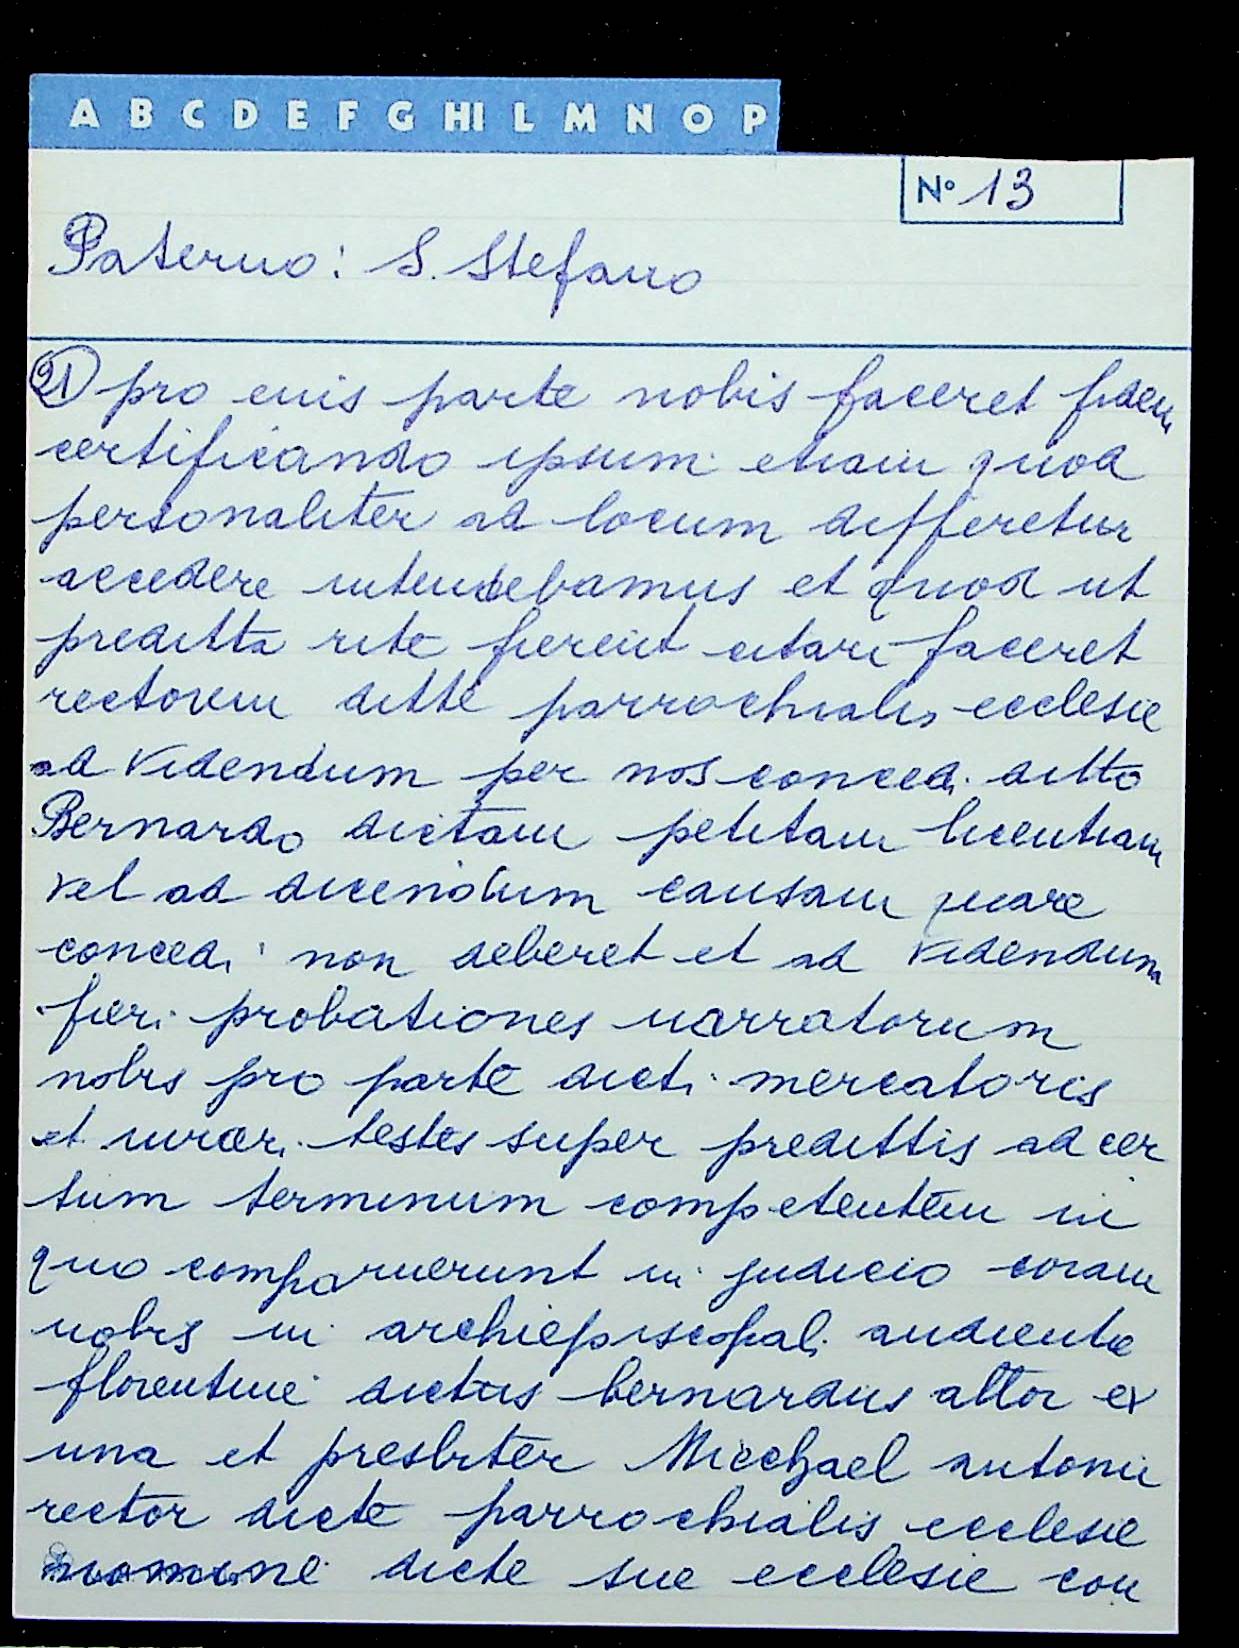 A B C D E F G HI L M N O P
N° 13
Paterno: S. Stefano
21) pro eius parte nobis faceret fidem
certificando ipsum etiam quod
personaliter ad locum differetur
accedere intendebamus et quod ut
preditta rite fierent citari faceret
rectorem ditte parrochialis ecclesie
ad videndum per nos concedi ditto
Bernardo dictam petitam licentiam
vel ad dicendum causam quare
concedi non deberet et ad videndum
fieri probationes narratorum
nobis pro parte dicti mercatoris
et iurari testes super predittis ad cer
tum terminum competentem in
quo comparuerunt in judicio coram
nobis in archiepiscopali audientie
florentine dictus bernardus attor ex
una et presbiter Micchael antonii
rector dicte parrochialis ecclesie
nomine dicte sue ecclesie con